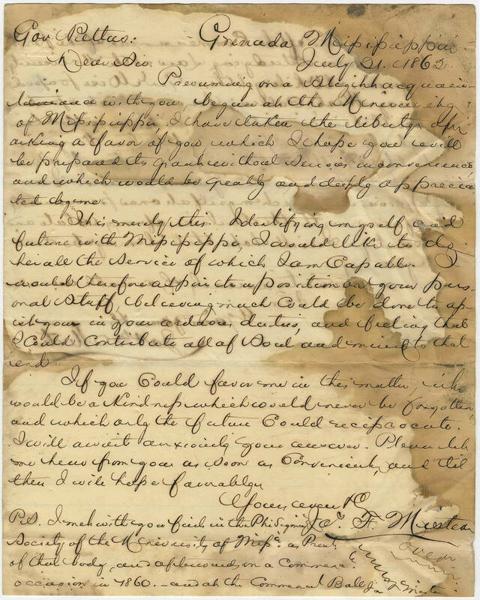 Gov Pettus: Grenada Mississippi
Dear Sir July 21. 1862
Presuming on a slight acquain-
tance with you begun at the University
of Mississippi I have taken the liberty of
asking a favor of you which I hope you will
be prepared to grant without serious inconvenience
and which would be greatly and deeply apprecia
ted by me.
It is merely this. Identifying myself and
future with Mississippi, I would like to do
her all the service of which I am capable
would therefore aspire to a position on your pers-
onal staff believing much could be done to as
sist you in your arduous duties, and feeling that
I could contribute all of soul and mind to that
end.
If you could favor me in this matter, it
would be a kindness which would never be forgotten
and which only the future could reciprocate.
I will await anxiously your answer. Please let
me hear from you as soon as convenient, and til
then I will hope favorably.
Yours ever
Jo. F.
P.S. I met with you first in the Phi Sigma
Society of the University of Miss. as Prest.
of that body, and afterwards on a Commence
occasion in 1860 - and at the Commencement Ball